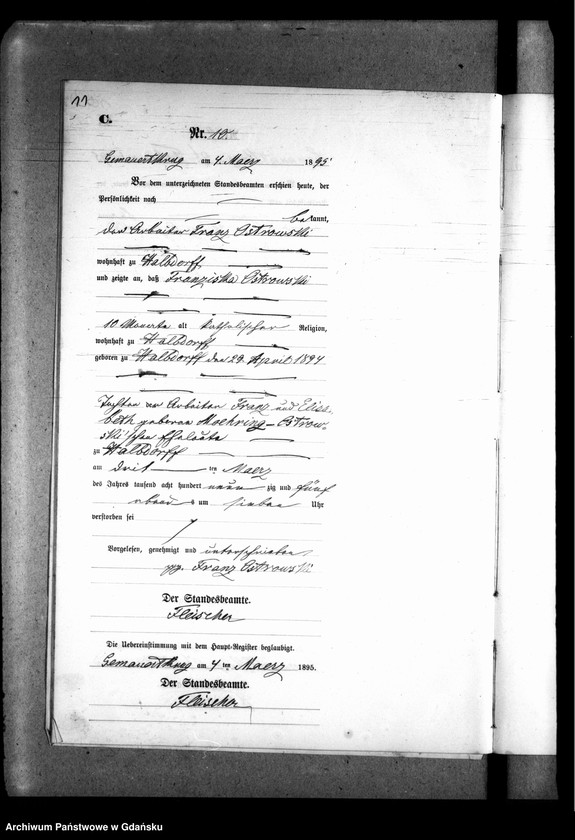 11
C.
Nr. 10.
Gemauertkrug am 4. Maerz 1895
Vor dem unterzeichneten Standesbeamten erschien heute, der
Persönlichkeit nach
bekannt,
der Arbeiter Franz Ostrowski
wohnhaft zu Halbdorff
und zeigte an, daß Franziska Ostrowski
10 Monate alt katholischer Religion,
wohnhaft zu Halbdorff
geboren zu Halbdorff den 29. April 1894
Tochter der Arbeiter Franz und Elisa-
beth geborene Moehring-Ostrow-
ski'schen Eheleute
zu Halbdorff
am drit ten Maerz
des Jahres tausend acht hundert neun zig und fünf
abends um sieben Uhr
verstorben sei
Vorgelesen, genehmigt und unterschrieben
gez. Franz Ostrowski
Der Standesbeamte.
Fleischer
Die Uebereinstimmung mit dem Haupt-Register beglaubigt.
Gemauertkrug am 4 ten Maerz 1895.
Der Standesbeamte.
Fleischer
Archiwum Państwowe w Gdańsku